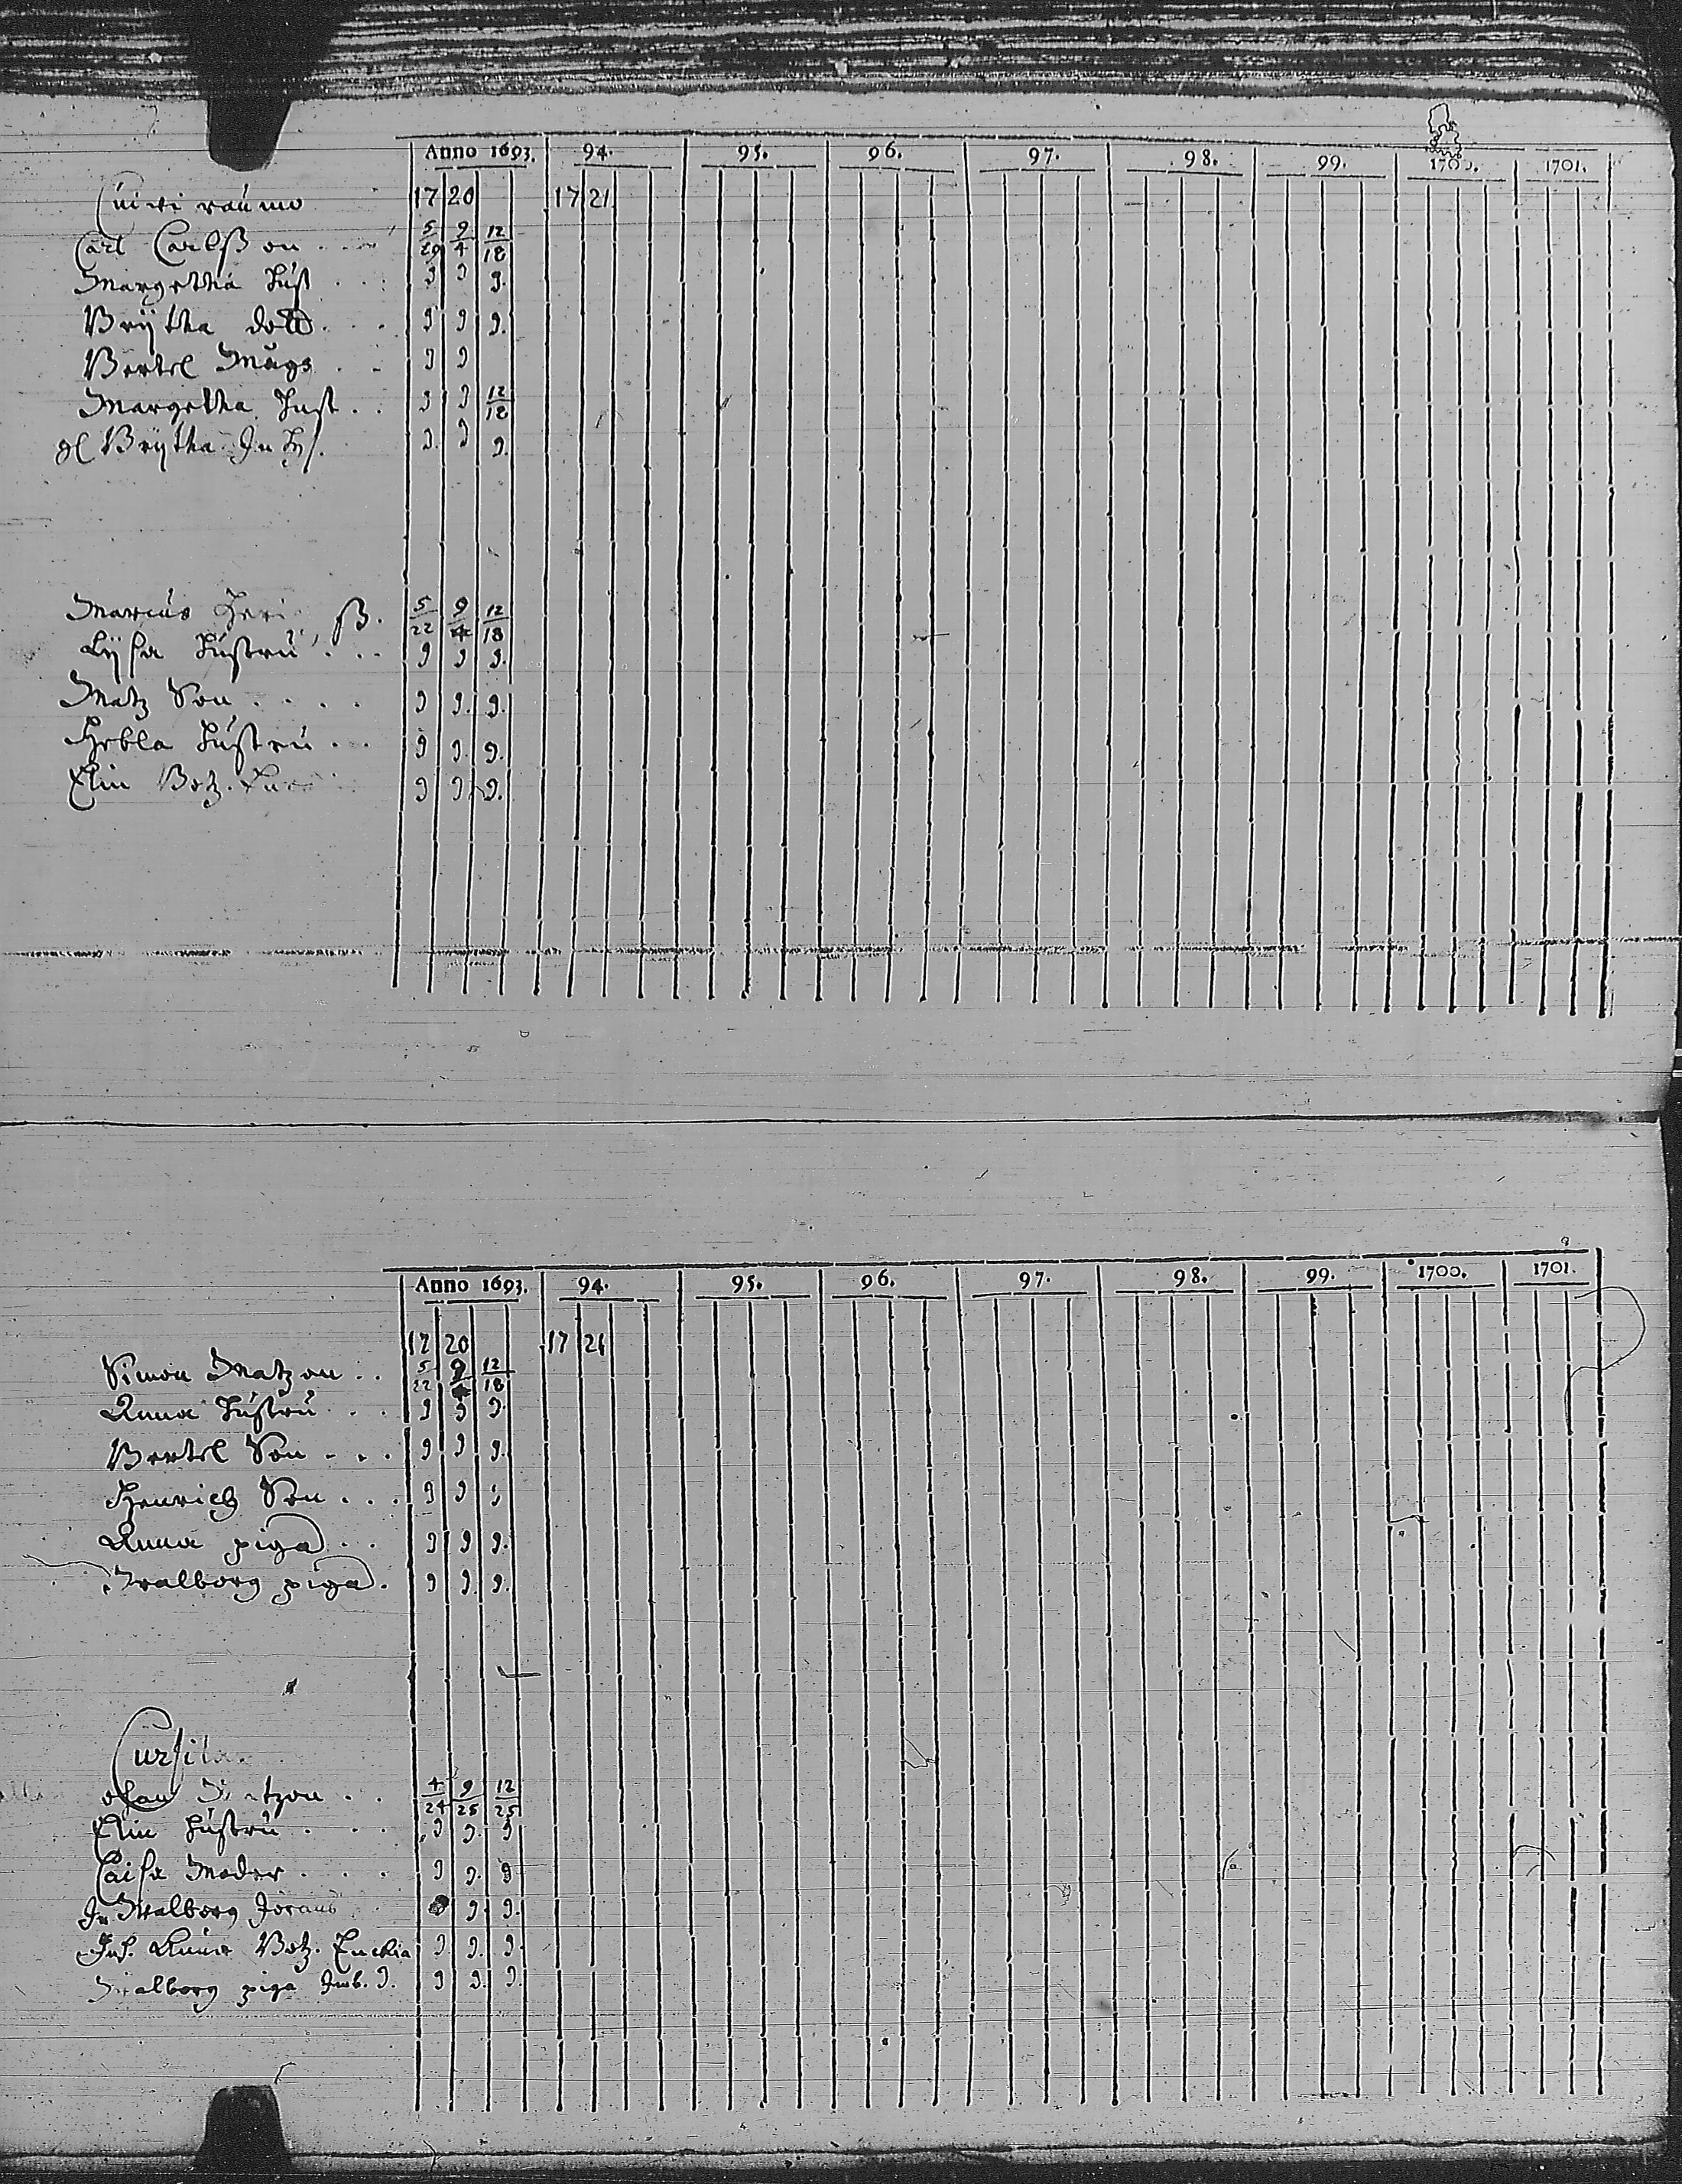 Anno 1693. 94. 95. 96. 97. 98. 99. 1700. 1701.
17 20 17 21
Carl Carlsson 5/29 9/4 12/18
Margetha Hust 9 9 9.
Brijtha dott 9 9 9.
Bertel Mågs 9 9
Margetha Hust 9 9 12/18
gl Brijtha Inh 9. 9 9.
Marcus ß. 5/22 9/4 12/18
Lijsa Hustru 9 9 9.
Matz Son 9 9. 9.
Hebla Hustru 9 9. 9.
Elin Botz. 9 9. 9.
Anno 1693. 94. 95. 96. 97. 98. 99. 1700. 1701.
17 20 17 21
Simon Matzon 5/22 9/4 12/18
Anna Hustru 9 9 9.
Bertel Son 9 9 9.
Henrich Son 9 9 9
Anna piga 9 9 9.
Walborg piga. 9 9. 9.
Cursila
Olaus Matzon 4/24 9/25 12/25
Elin Hustru 9 9. 9
Caisa Moder 9 9. 9
In Walborg Jörans 9. 9.
Inh. Anna Botz. Enckia 9 9. 9
Walborg piga Inh. 9. 9 9. 9.